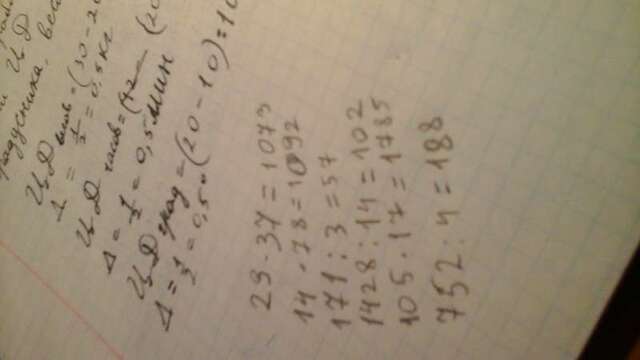 ЦД
радусника, вес
ЦД весов = (30 - 20
Δ = 1/2 = 0,5 кг
ЦД часов = (12 (20
Δ = 1/2 = 0,5 мин
ЦД град = (20 - 10) : 10
Δ = 1/2 = 0,5°
29 · 37 = 1073
14 · 78 = 1092
171 : 3 = 57
1428 : 14 = 102
105 · 17 = 1785
752 : 4 = 188